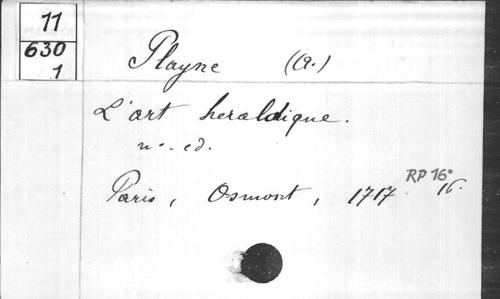 11
630
1
Playne ((a.)
L'art heraldique.
n^e. ed.
Paris, Osmont, 1717. 16°
RP 16°